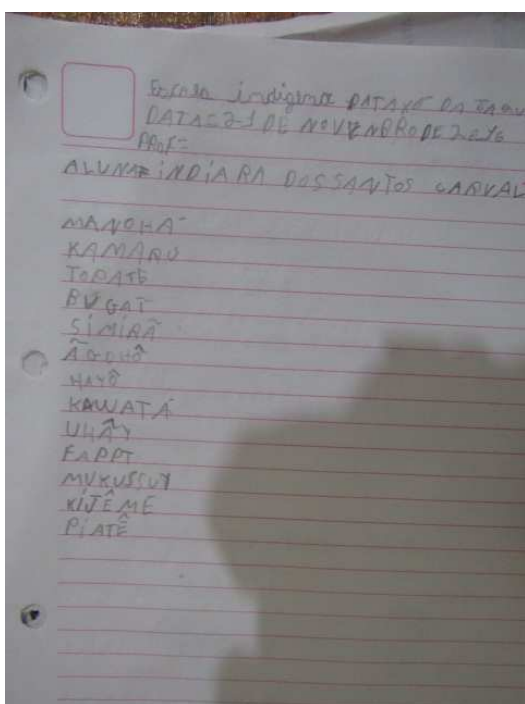 Escola indigena PATAXÓ DA
DATA=21 DE NOVENBRO DE 2016
PROF=
ALUNA=INDIARA DOS SANTOS CARVAL
MANOHÃ
KAMARÚ
TOPATE
BUGAT
SIMIRÃ
ÃGOHÔ
HAYÔ
KAWATÁ
UHÃY
EAPPT
MUKUSSUY
KIJÊME
PIATÊ